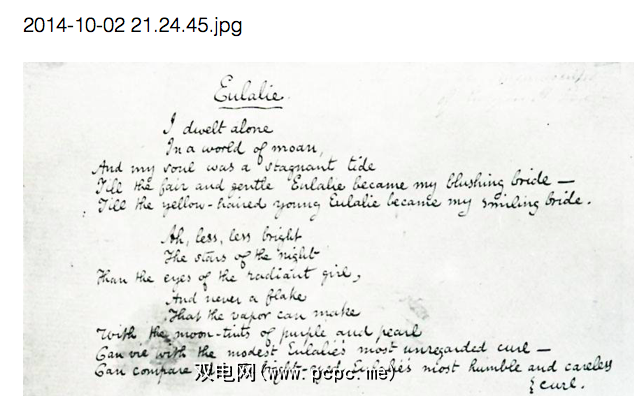 2014-10-02 21.24.45.jpg
Eulalie.
I dwelt alone
In a world of moan,
And my soul was a stagnant tide
Till the fair and gentle Eulalie became my blushing bride —
Till the yellow-haired young Eulalie became my smiling bride.
Ah, less, less bright
The stars of the night
Than the eyes of the radiant girl,
And never a flake
That the vapor can make
With the moon-tints of purple and pearl
Can vie with the modest Eulalie's most unregarded curl —
Can compare most humble and careless
双电网(www.pcpc.me)
curl.